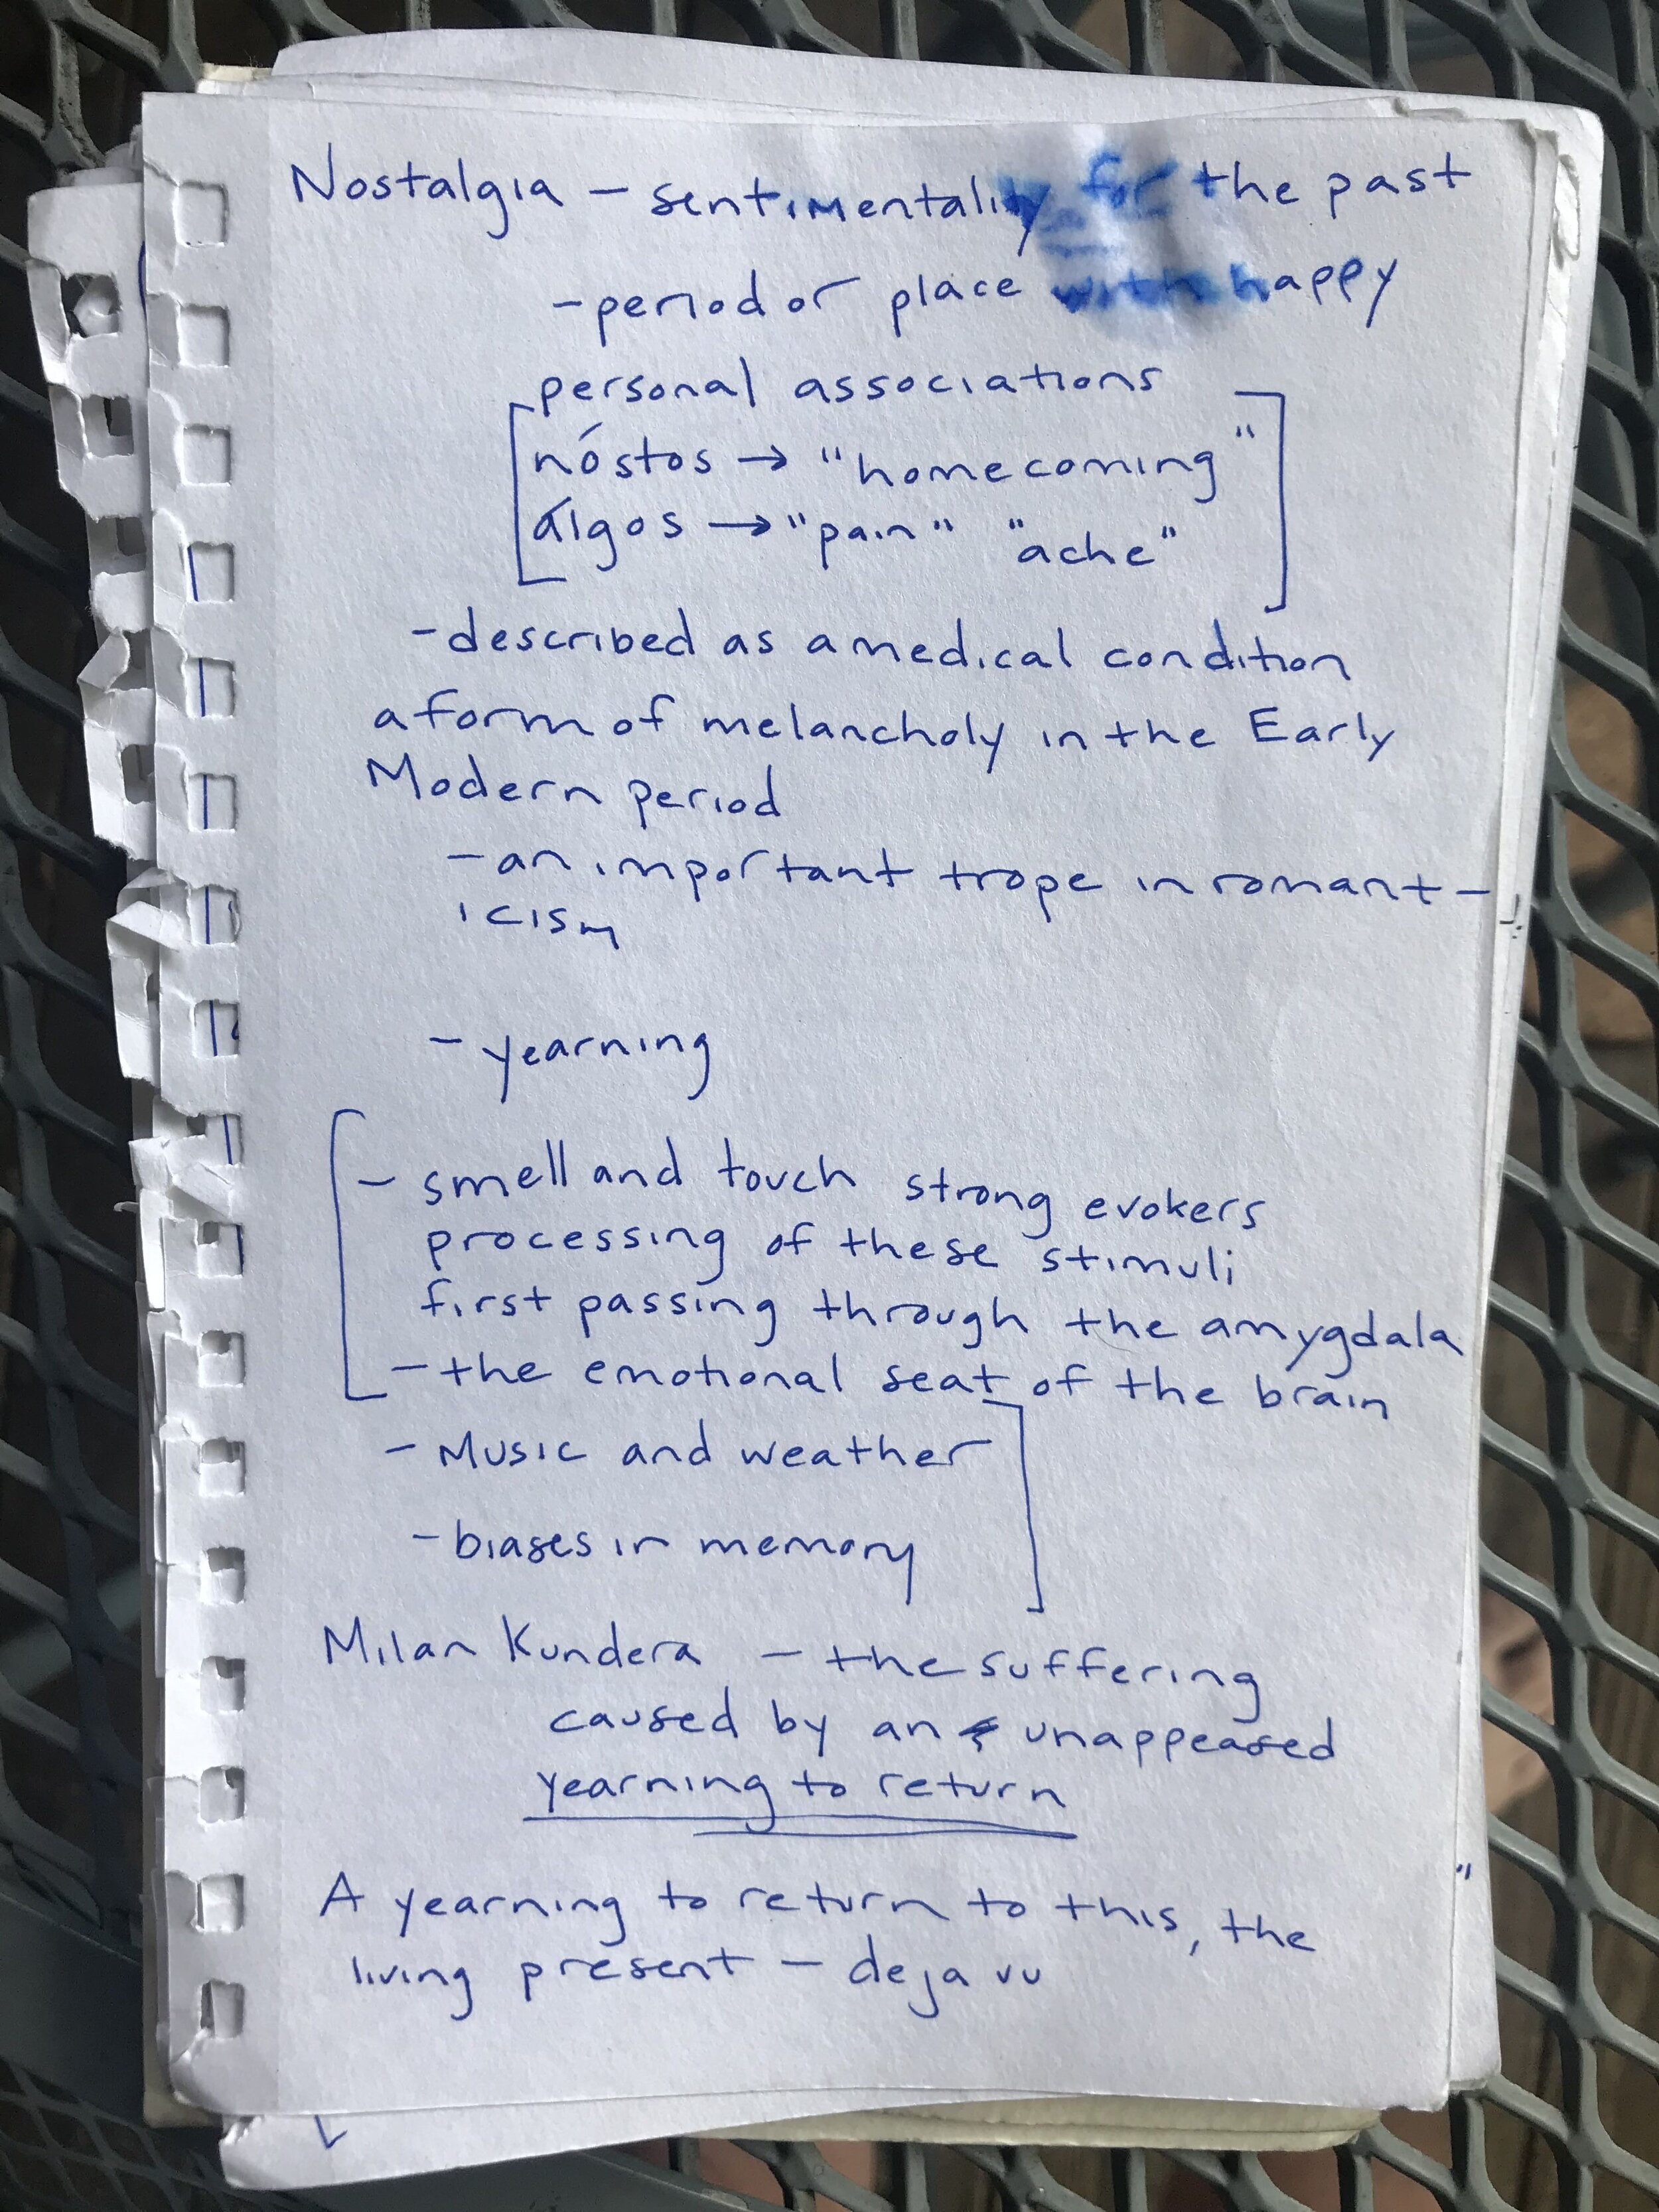 Nostalgia – sentimentality for the past
- period or place with happy
personal associations
nóstos → "homecoming"
álgos → "pain" "ache"
- described as a medical condition
a form of melancholy in the Early
Modern period
- an important trope in romant-
icism
- yearning
- smell and touch strong evokers
processing of these stimuli
first passing through the amygdala
- the emotional seat of the brain
- Music and weather
- biases in memory
Milan Kundera – the suffering
caused by an unappeased
yearning to return
A yearning to return to this, the
living present – deja vu